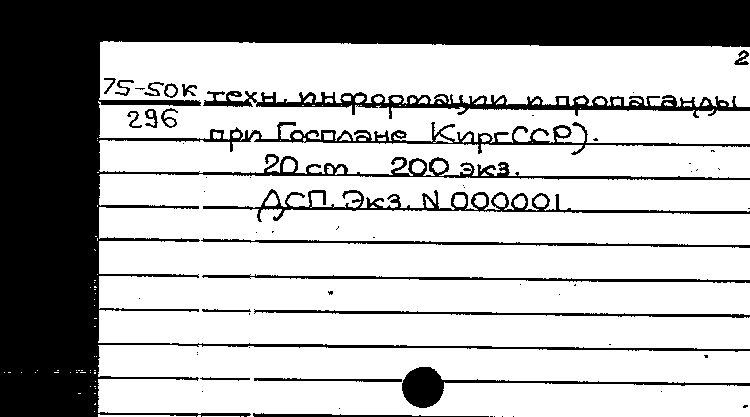 2
75-50к техн. информации и пропаганды
296 при Госплане КиргССР).
20 cm. 200 экз.
ДСП. Экз. N 000001.